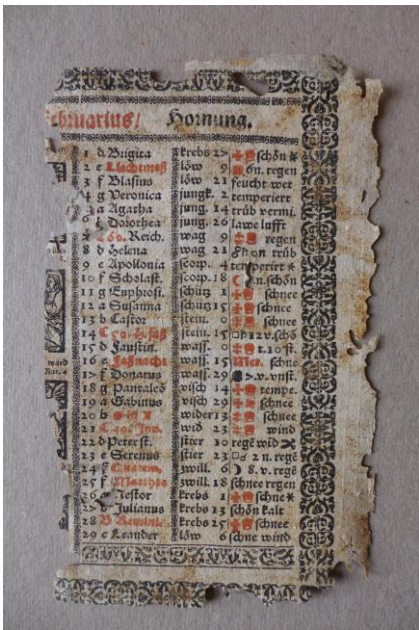 Februarius/ Hornung.
1 d Brigita krebs 27 schön
2 e Liechtmeß löw 9 ön. regen
3 f Blasius löw 21 feucht wet
4 g Veronica jungk. 2 temperiert
a Agatha jung. 14 trüb vermi.
Dorothea jung. 26 lawe lufft
Reich. wag 9 regen
8 d Helena wag 21 trüb
9 e Apollonia scorp. 4 temperirt
10 f Scholast. scorp. 18 n. schön
11 g Euphrosi. schütz 1 schnee
12 a Susanna schütz 15 schnee
13 b Castor stein. 0 schnee
14 C stein. 15 12 v. schö
15 d Faustin. wass. 0 1. 10 st.
16 e Faßnacht wass. 15 Mer. schne
17 f Donatus wass. 29 v. vnst.
18 g Pantaleō visch 14 tempe.
19 a Gabinus visch 29 schnee
20 b wider 13 schnee
21 C Inv. wid wind
22 d Peter st. stier 10 regē wid
23 e Serenus stier 23 2 n. regē
24 f Quatem. zwill. 6 8. v. regē
25 f Matthie zwill. 18 schnee regen
26 Nestor krebs 1 schne
27 Julianus krebs 13 schön kalt
28 B Remini. krebs 25 schnee
29 c Leander löw 6 schne wind